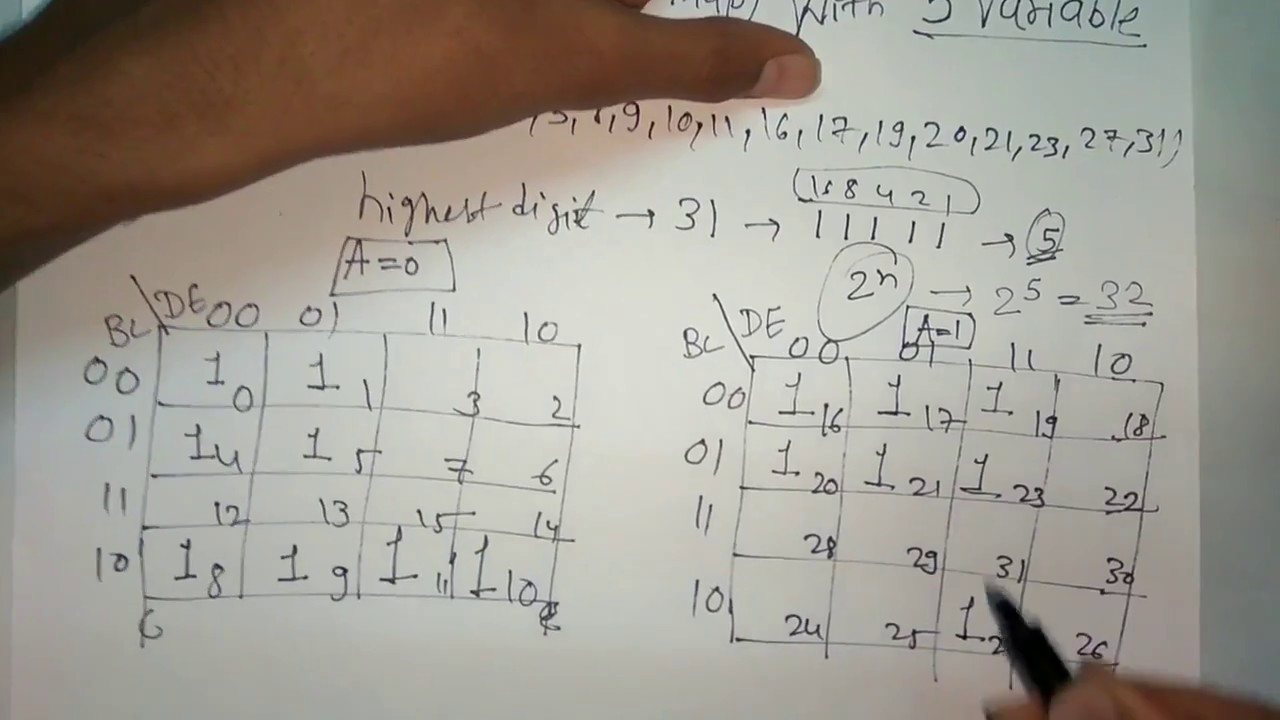 with 5 variable
9, 10, 11, 16, 17, 19, 20, 21, 23, 27, 31)
highest digit → 31 → 1 1 1 1 1 → 5
8 4 2 1
2^n → 2^5 = 32
A=0
BC \ DE 00 01 11 10
00 1 0 1 1 3 2
01 1 4 1 5 7 6
11 12 13 15 14
10 1 8 1 9 1 11 1 10
A=1
BC \ DE 00 01 11 10
00 1 16 1 17 1 19 18
01 1 20 1 21 1 23 22
11 28 29 31 30
10 24 25 1 2 26